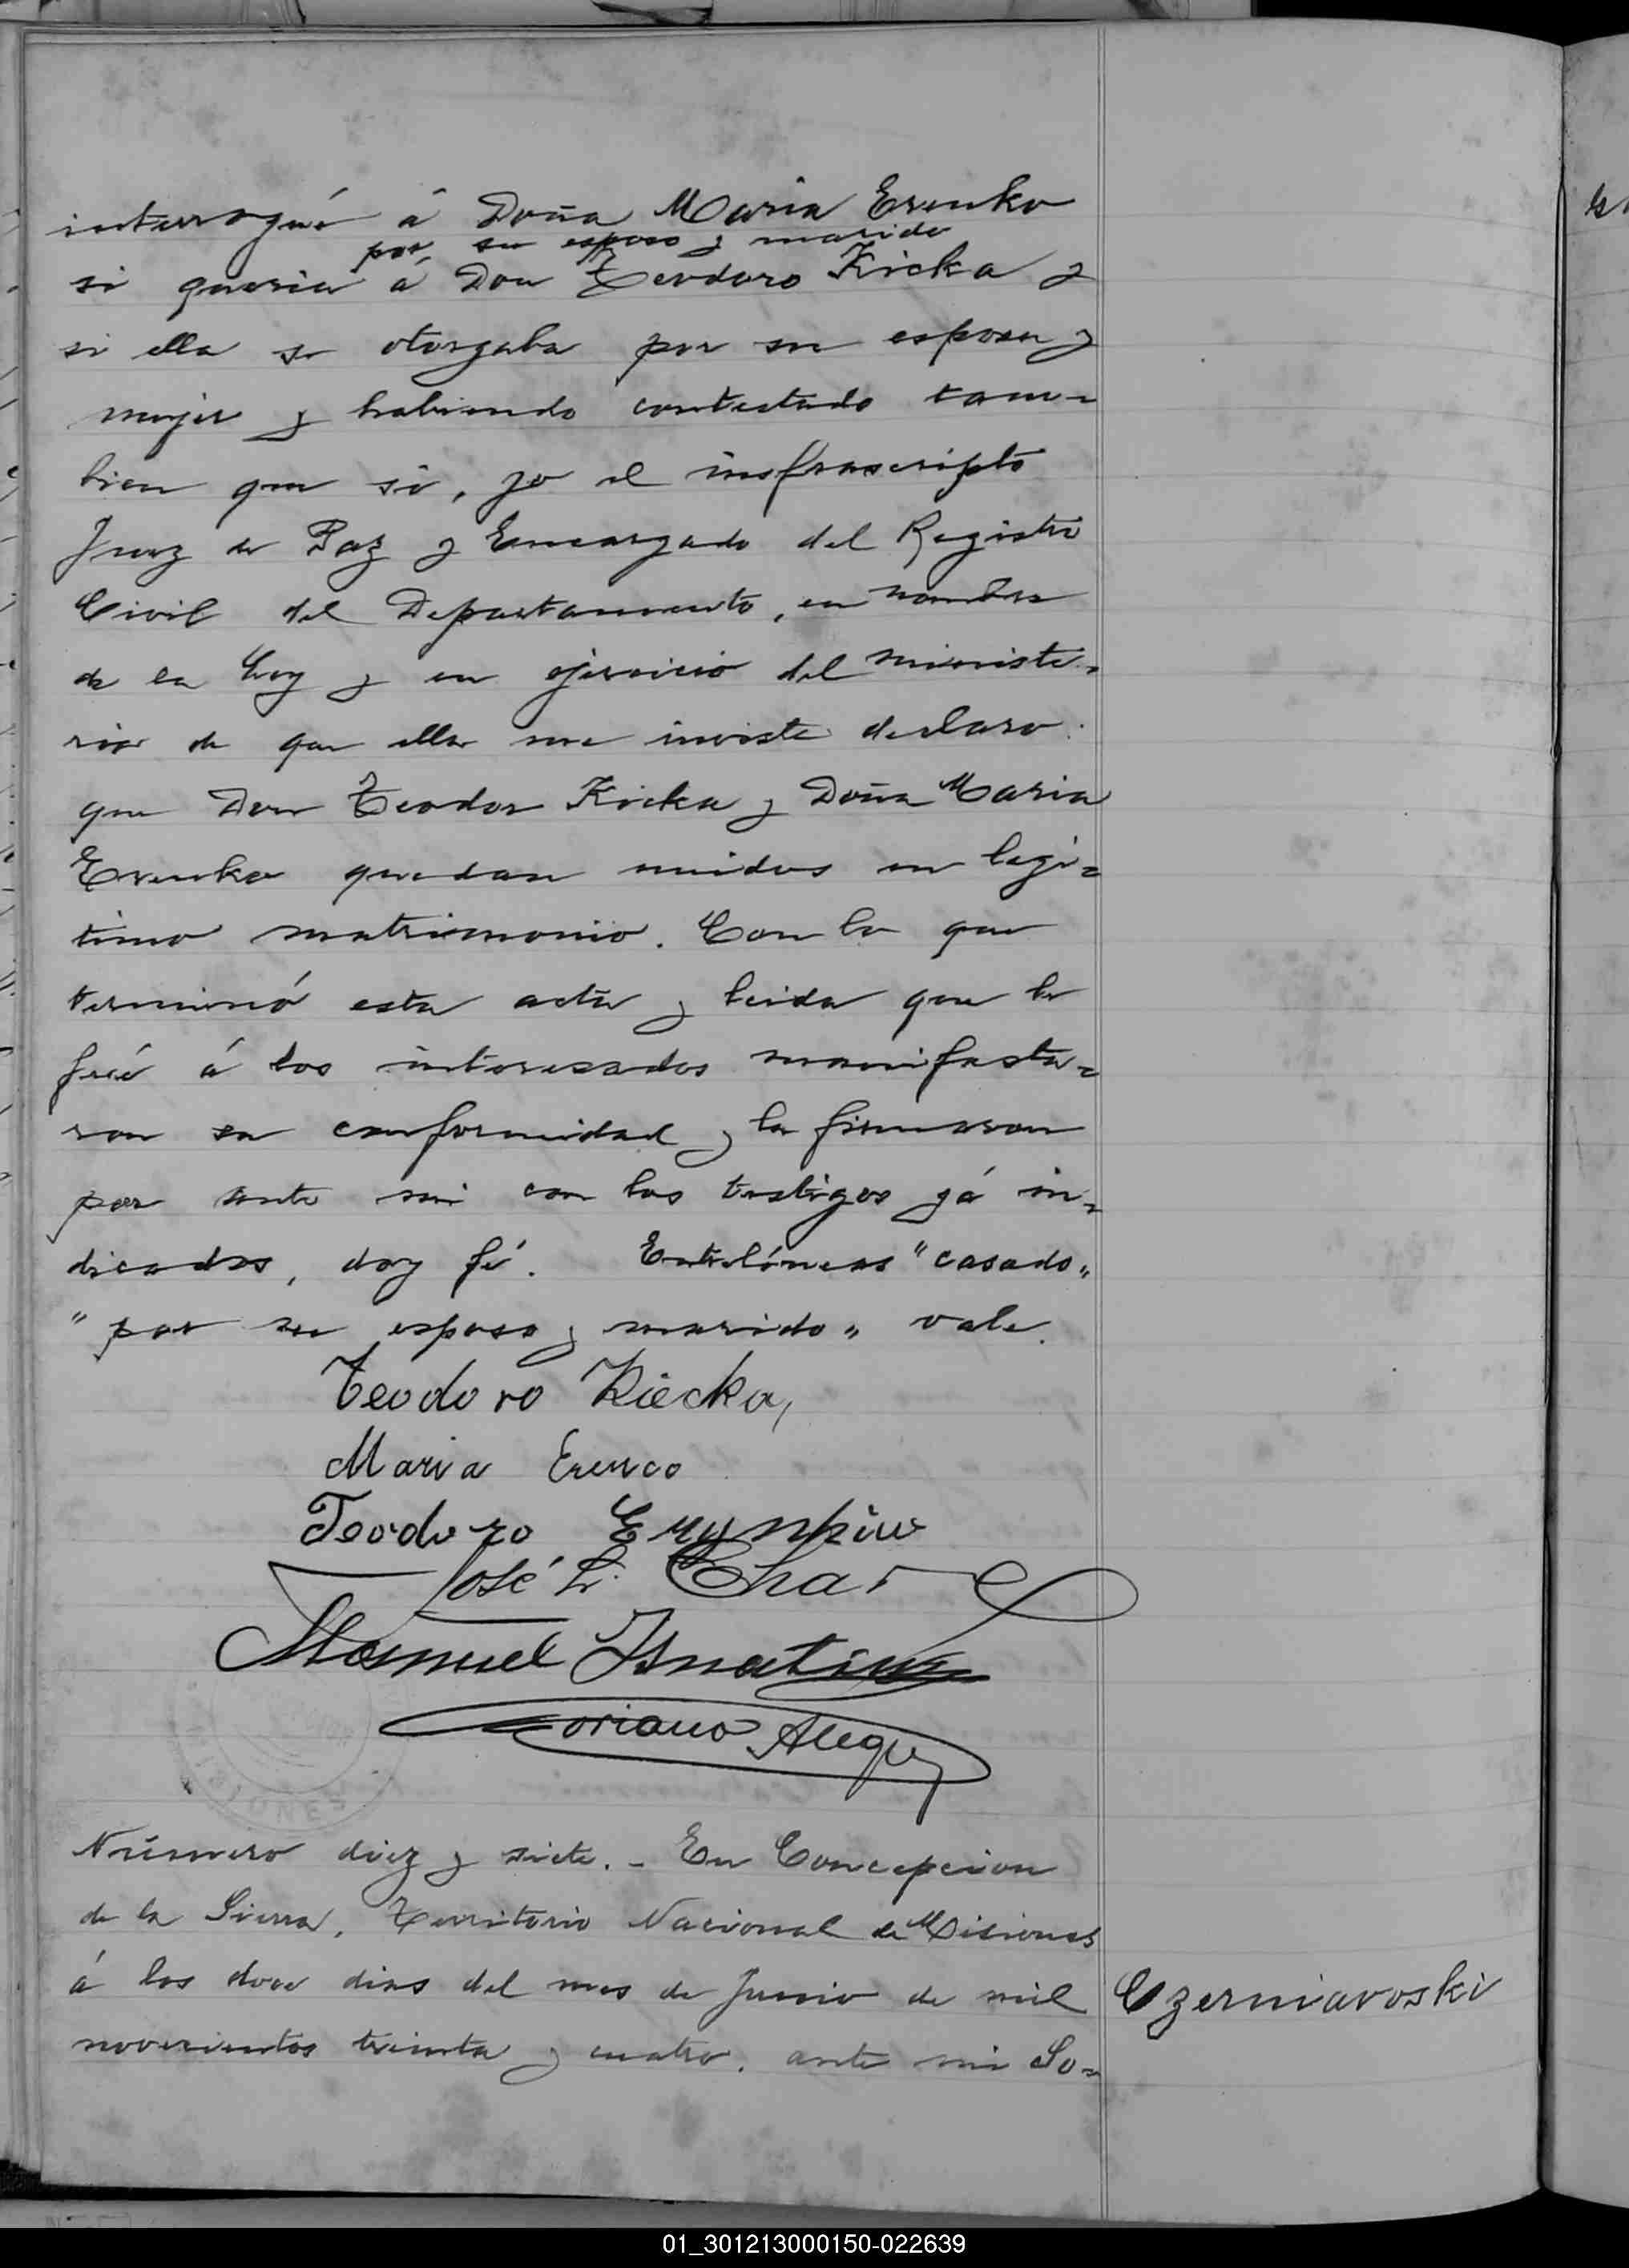 interrogué á Doña Maria Erenko
por su esposo y marido
si queria á Don Teodoro Kicka y
si ella se otorgaba por su esposa y
mujer y habiendo contestado tam-
bien que si, yo el insfrascripto
Juez de Paz y Encargado del Registro
Civil del Departamento, en nombre
de la Ley y en ejercicio del ministe-
rio de que ella me inviste declaro
que Don Teodor Kicka y Doña Maria
Erenko quedan unidos en legi=
timo matrimonio. Con lo que
terminó esta acta y leida que le
fué á los interesados manifesta=
ron su conformidad y la firmaron
por ante mi con los testigos yá in=
dicados, doy fé. Entrelíneas "casado"
"por su esposo y marido" vale.
Teodoro Kiecka,
Maria Erenco
Teodoro
José L. Char
Manuel
Soriano Alegre
JONES
Número diez y siete. - En Concepcion
de la Sierra, Territorio Nacional de Misiones
á los doce dias del mes de Junio de mil
novecientos treinta y cuatro, ante mi So=
Czerniavoski
01_301213000150-022639